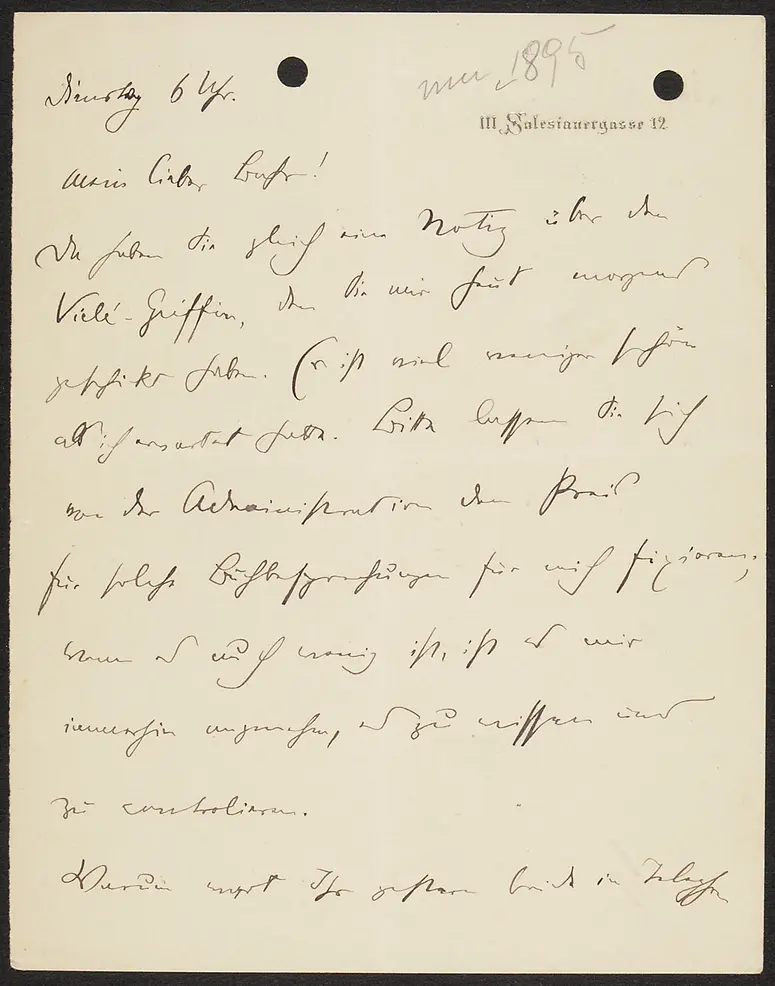 1895
III. Salesianergasse 12.
Dienstag 6 Uhr.
mein lieber Bahr!
Da haben Sie gleich eine Notiz über den
Vielé-Griffin, den Sie mir heut morgens
geschickt haben. Er ist viel weniger schön
als ich erwartet hatte. Bitte lassen Sie sich
von der Administration den Preis
für solche Buchbesprechungen für mich fixieren;
wenn es auch wenig ist, ist es mir
immerhin angenehm, es zu wissen und
zu controlieren.
Warum wart Ihr gestern beide im